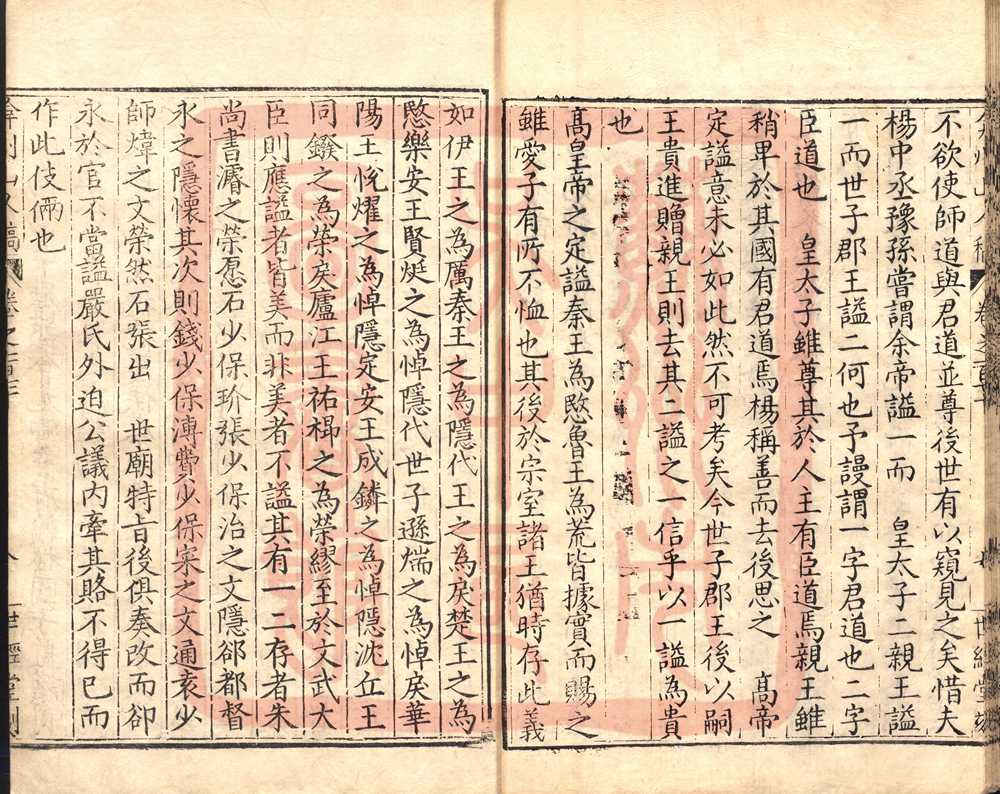 不欲使師道與君道並尊後世有以窺見之矣惜夫
楊中丞豫孫嘗謂余帝謚一而　皇太子二親王謚
一而世子郡王謚二何也予謾謂一字君道也二字
臣道也　皇太子雖尊其於人主有臣道焉親王雖
稍卑於其國有君道焉楊稱善而去後思之　高帝
定謚意未必如此然不可考矣今世子郡王後以嗣
王貴進贈親王則去其二謚之一信乎以一謚為貴
也
高皇帝之定謚秦王為愍魯王為荒皆據實而賜之
雖愛子有所不恤也其後於宗室諸王猶時存此義
如伊王之為厲秦王之為隱代王之為戾楚王之為
愍樂安王賢烶之為悼隱代世子遜煓之為悼戾華
陽王悅燿之為悼隱定安王成鏻之為悼隱沈丘王
同鏺之為榮戾廬江王祐㮛之為榮繆至於文武大
臣則應謚者皆美而非美者不謚其有一二存者朱
尚書濬之榮愿石少保玠張少保治之文隱郤都督
永之隱懷其次則錢少保溥費少保宷之文通袁少
師煒之文榮然石張出　世廟特旨後俱奏改而郤
永於官不當謚嚴氏外迫公議內牽其賂不得已而
作此伎倆也
世經堂刻